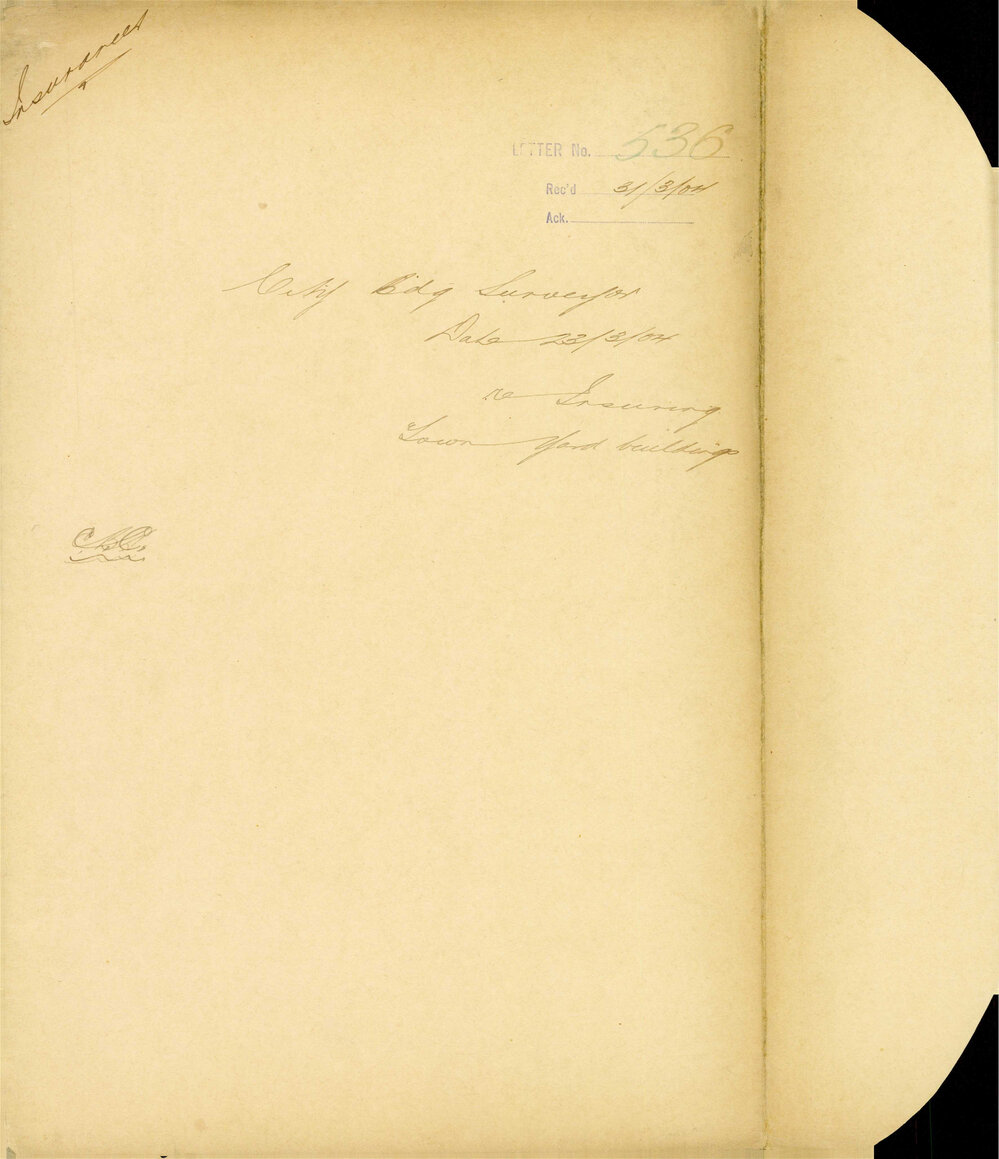 Insurances
LETTER No. 536
Rec'd 31/3/04
Ack.
City Bdg Surveyor
Date 23/3/04
re Insuring
Town Yard buildings